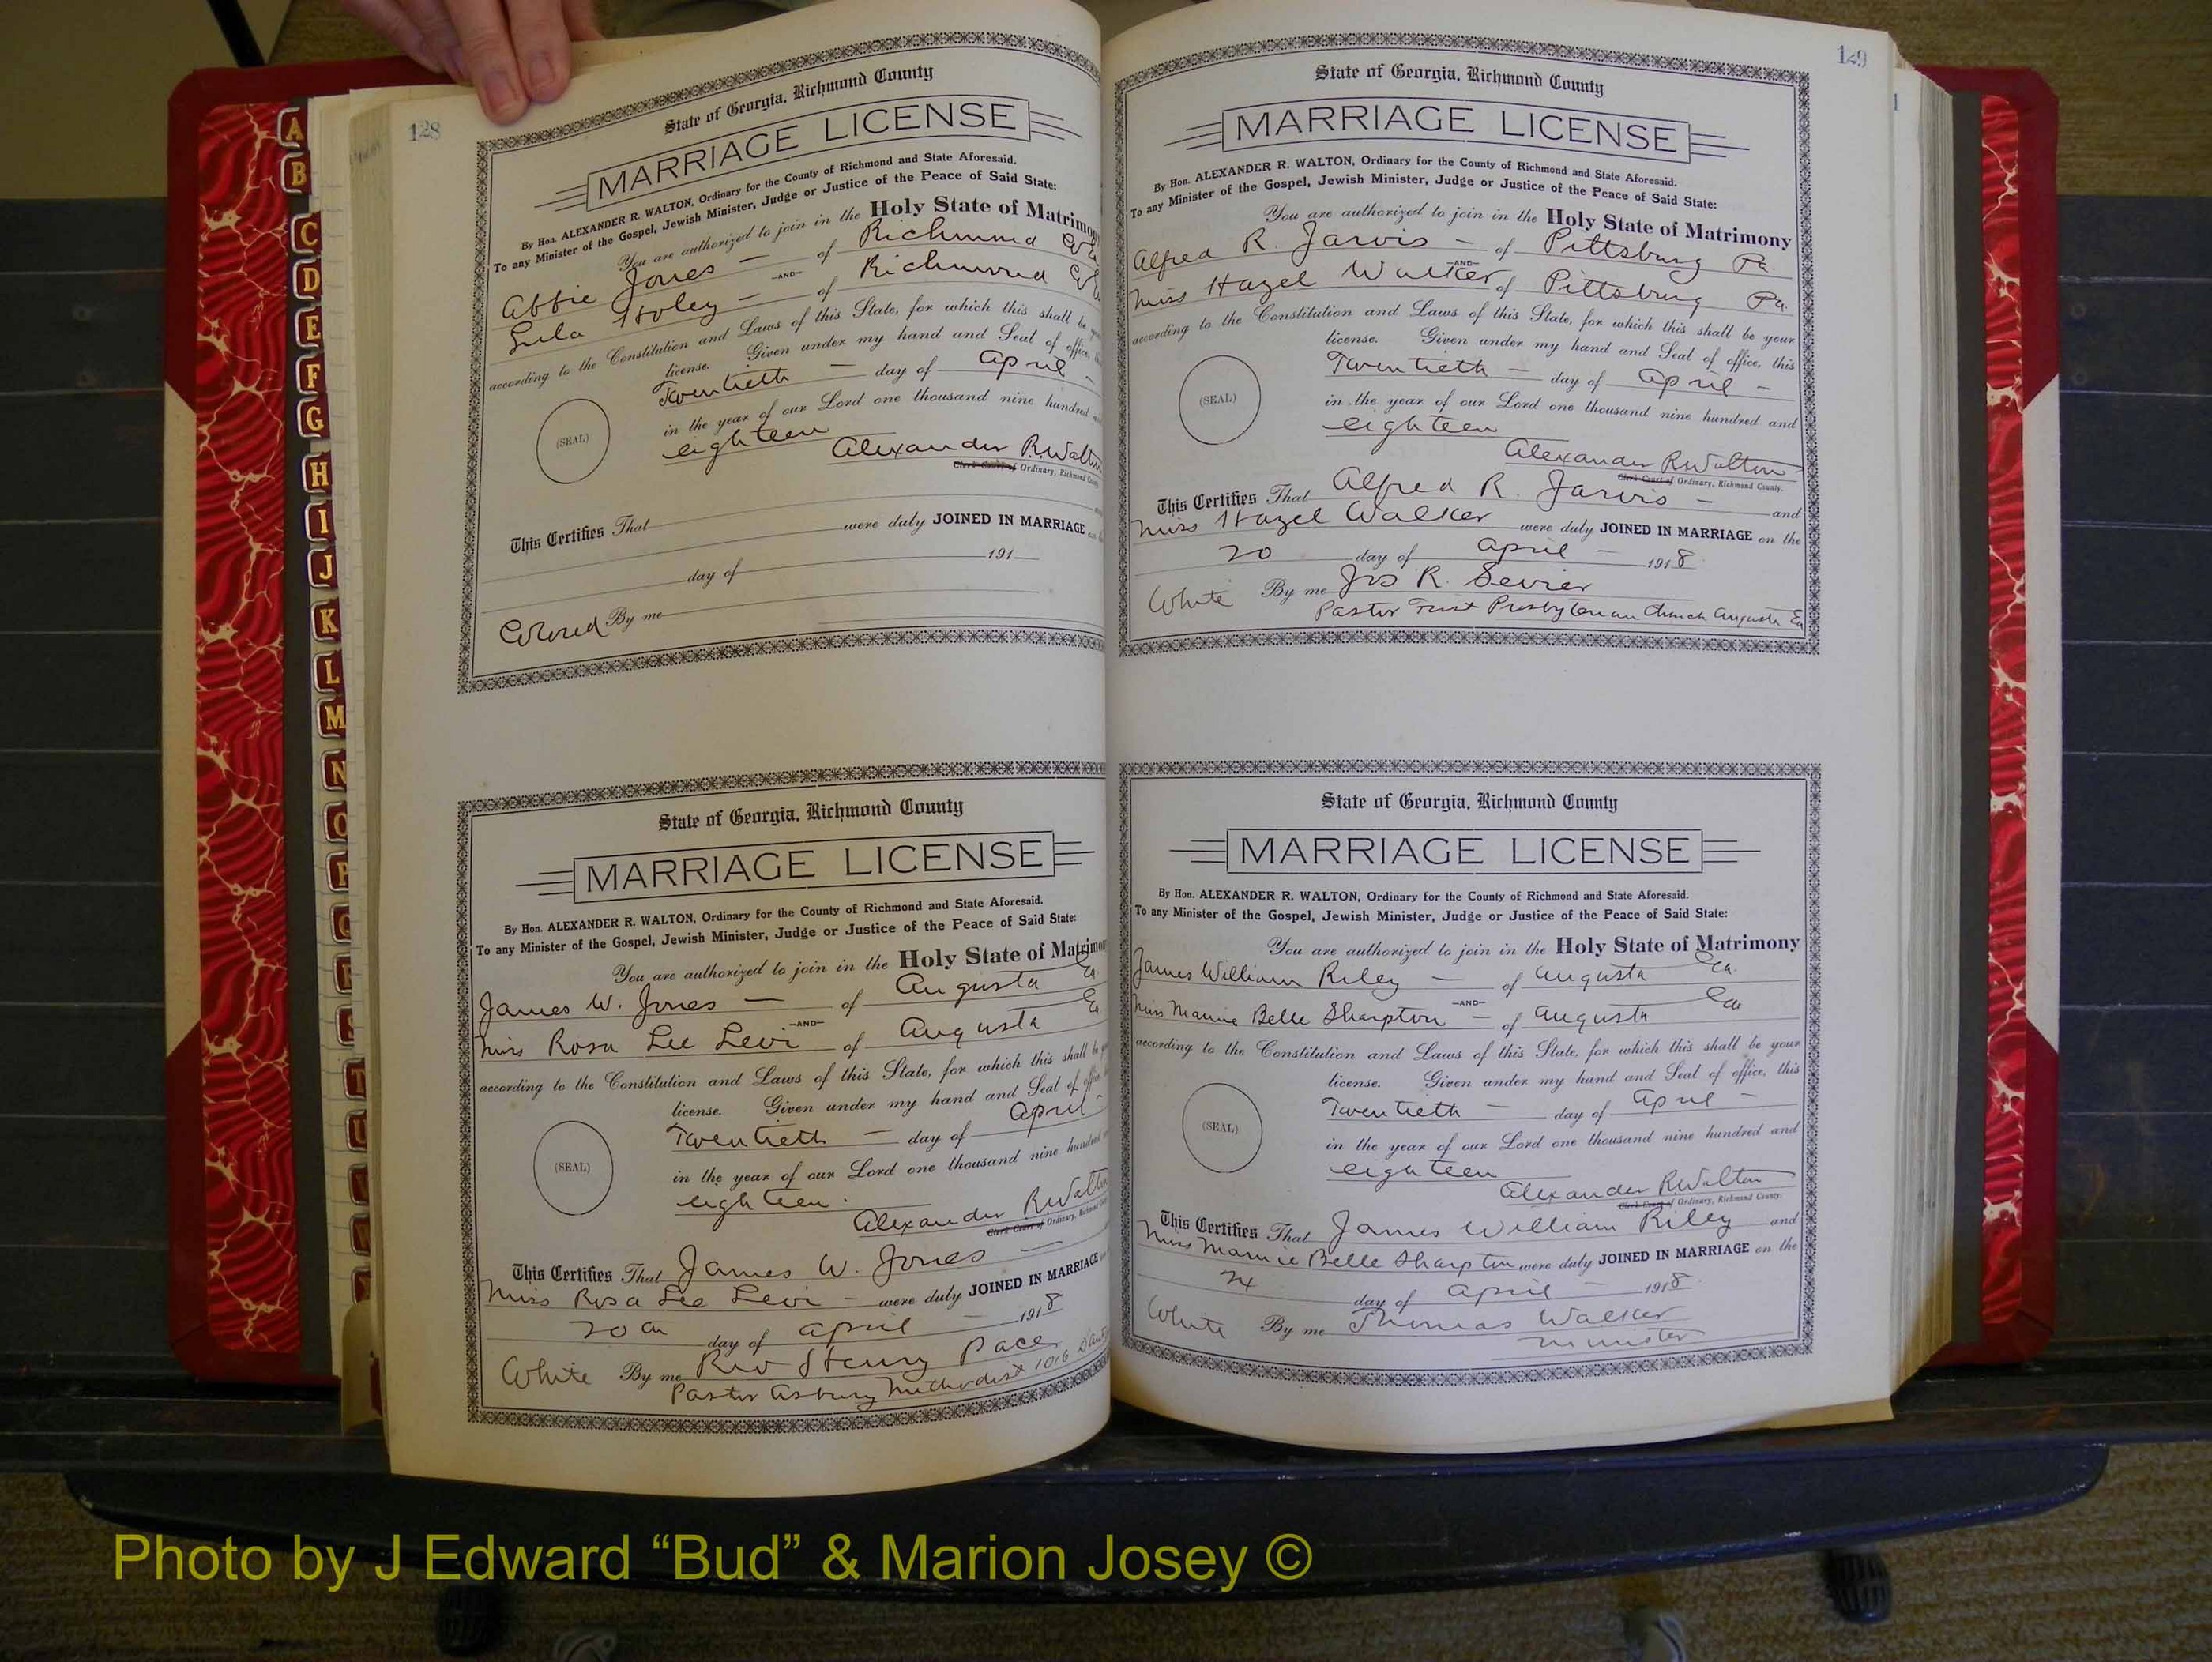 128
State of Georgia, Richmond County
MARRIAGE LICENSE
By Hon. ALEXANDER R. WALTON, Ordinary for the County of Richmond and State Aforesaid.
To any Minister of the Gospel, Jewish Minister, Judge or Justice of the Peace of Said State:
You are authorized to join in the Holy State of Matrimo
Abbie Jones — of Richmond Co
—AND—
Lula of Richmond Co
according to the Constitution and Laws of this State, for which this shall be
license. Given under my hand and Seal of office,
Twentieth — day of April —
(SEAL)
in the year of our Lord one thousand nine hundred
eighteen
Alexander R Walton
Clerk Court of Ordinary, Richmond County
This Certifies That
were duly JOINED IN MARRIAGE
day of 191
Colored By me
State of Georgia, Richmond County
MARRIAGE LICENSE
By Hon. ALEXANDER R. WALTON, Ordinary for the County of Richmond and State Aforesaid.
To any Minister of the Gospel, Jewish Minister, Judge or Justice of the Peace of Said State:
You are authorized to join in the Holy State of Matrimon
James W. Jones — of Augusta Ga
—AND—
Miss Rosa Lee Levi of Augusta Ga
according to the Constitution and Laws of this State, for which this shall be
license. Given under my hand and Seal of office,
Twentieth — day of April —
(SEAL)
in the year of our Lord one thousand nine hundred
eighteen.
Alexander R Walton
Clerk Court of Ordinary, Richmond
This Certifies That James W. Jones —
Miss Rosa Lee Levi — were duly JOINED IN MARRIAGE
20th day of April — 1918
White By me Rev Henry Pace
Pastor Asbury Methodist 1016
129
State of Georgia, Richmond County
MARRIAGE LICENSE
By Hon. ALEXANDER R. WALTON, Ordinary for the County of Richmond and State Aforesaid.
To any Minister of the Gospel, Jewish Minister, Judge or Justice of the Peace of Said State:
You are authorized to join in the Holy State of Matrimony
Alfred R. Jarvis — of Pittsburg Pa.
—AND—
Miss Hazel Walker of Pittsburg Pa.
according to the Constitution and Laws of this State, for which this shall be your
license. Given under my hand and Seal of office, this
Twentieth — day of April —
(SEAL)
in the year of our Lord one thousand nine hundred and
eighteen
Alexander R Walton
Clerk Court of Ordinary, Richmond County.
This Certifies That Alfred R. Jarvis — and
Miss Hazel Walker were duly JOINED IN MARRIAGE on the
20 day of April — 1918
White By me Jos R. Sevier
Pastor First Presbyterian Church Augusta Ga
State of Georgia, Richmond County
MARRIAGE LICENSE
By Hon. ALEXANDER R. WALTON, Ordinary for the County of Richmond and State Aforesaid.
To any Minister of the Gospel, Jewish Minister, Judge or Justice of the Peace of Said State:
You are authorized to join in the Holy State of Matrimony
James William Riley — of Augusta Ga.
—AND—
Miss Mamie Belle Sharpton — of Augusta Ga
according to the Constitution and Laws of this State, for which this shall be your
license. Given under my hand and Seal of office, this
Twentieth — day of April —
(SEAL)
in the year of our Lord one thousand nine hundred and
eighteen
Alexander R Walton
Clerk Court of Ordinary, Richmond County.
This Certifies That James William Riley and
Miss Mamie Belle Sharpton were duly JOINED IN MARRIAGE on the
24 day of April — 1918
White By me Thomas Walker
Minister
A
B
C
D
E
F
G
H
I
J
K
L
M
N
O
P
Q
R
S
T
U
V
W
Photo by J Edward “Bud” & Marion Josey ©